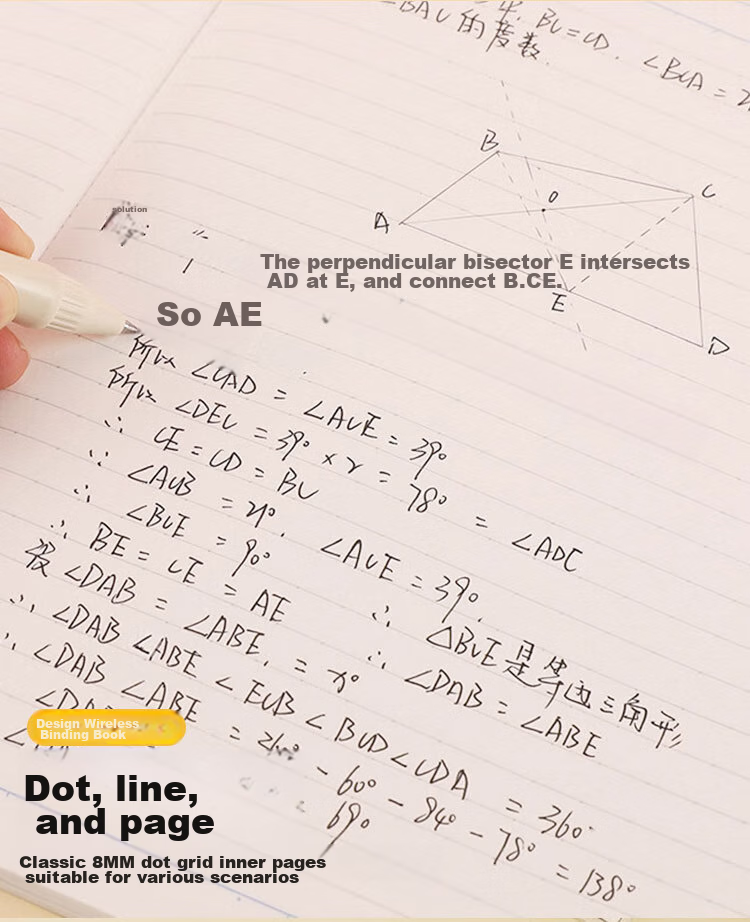 ∠BAC 的度数.
BC=CD. ∠BCA = 2
B
C
O
A
E
D
solution
The perpendicular bisector E intersects
AD at E, and connect B.CE.
So AE
所以 ∠CAD = ∠ACE = 39°
所以 ∠DEC = 39° × 2 = 78° = ∠ADC
∴ CE = CD = BC
∵ ∠ACB = 21°, ∠ACE = 39°.
∴ ∠BCE = 90°
∴ BE = CE = AE ∴ △BCE 是等边三角形
设 ∠DAB = ∠ABE = x° ∴ ∠DAB = ∠ABE
∴ ∠DAB ∠ABE < ECB < BCD < CDA = 360°
∴ ∠DAB ∠ABE = - 60° - 84° - 78° = 138°
69°
Design Wireless
Binding Book
Dot, line,
and page
Classic 8MM dot grid inner pages
suitable for various scenarios